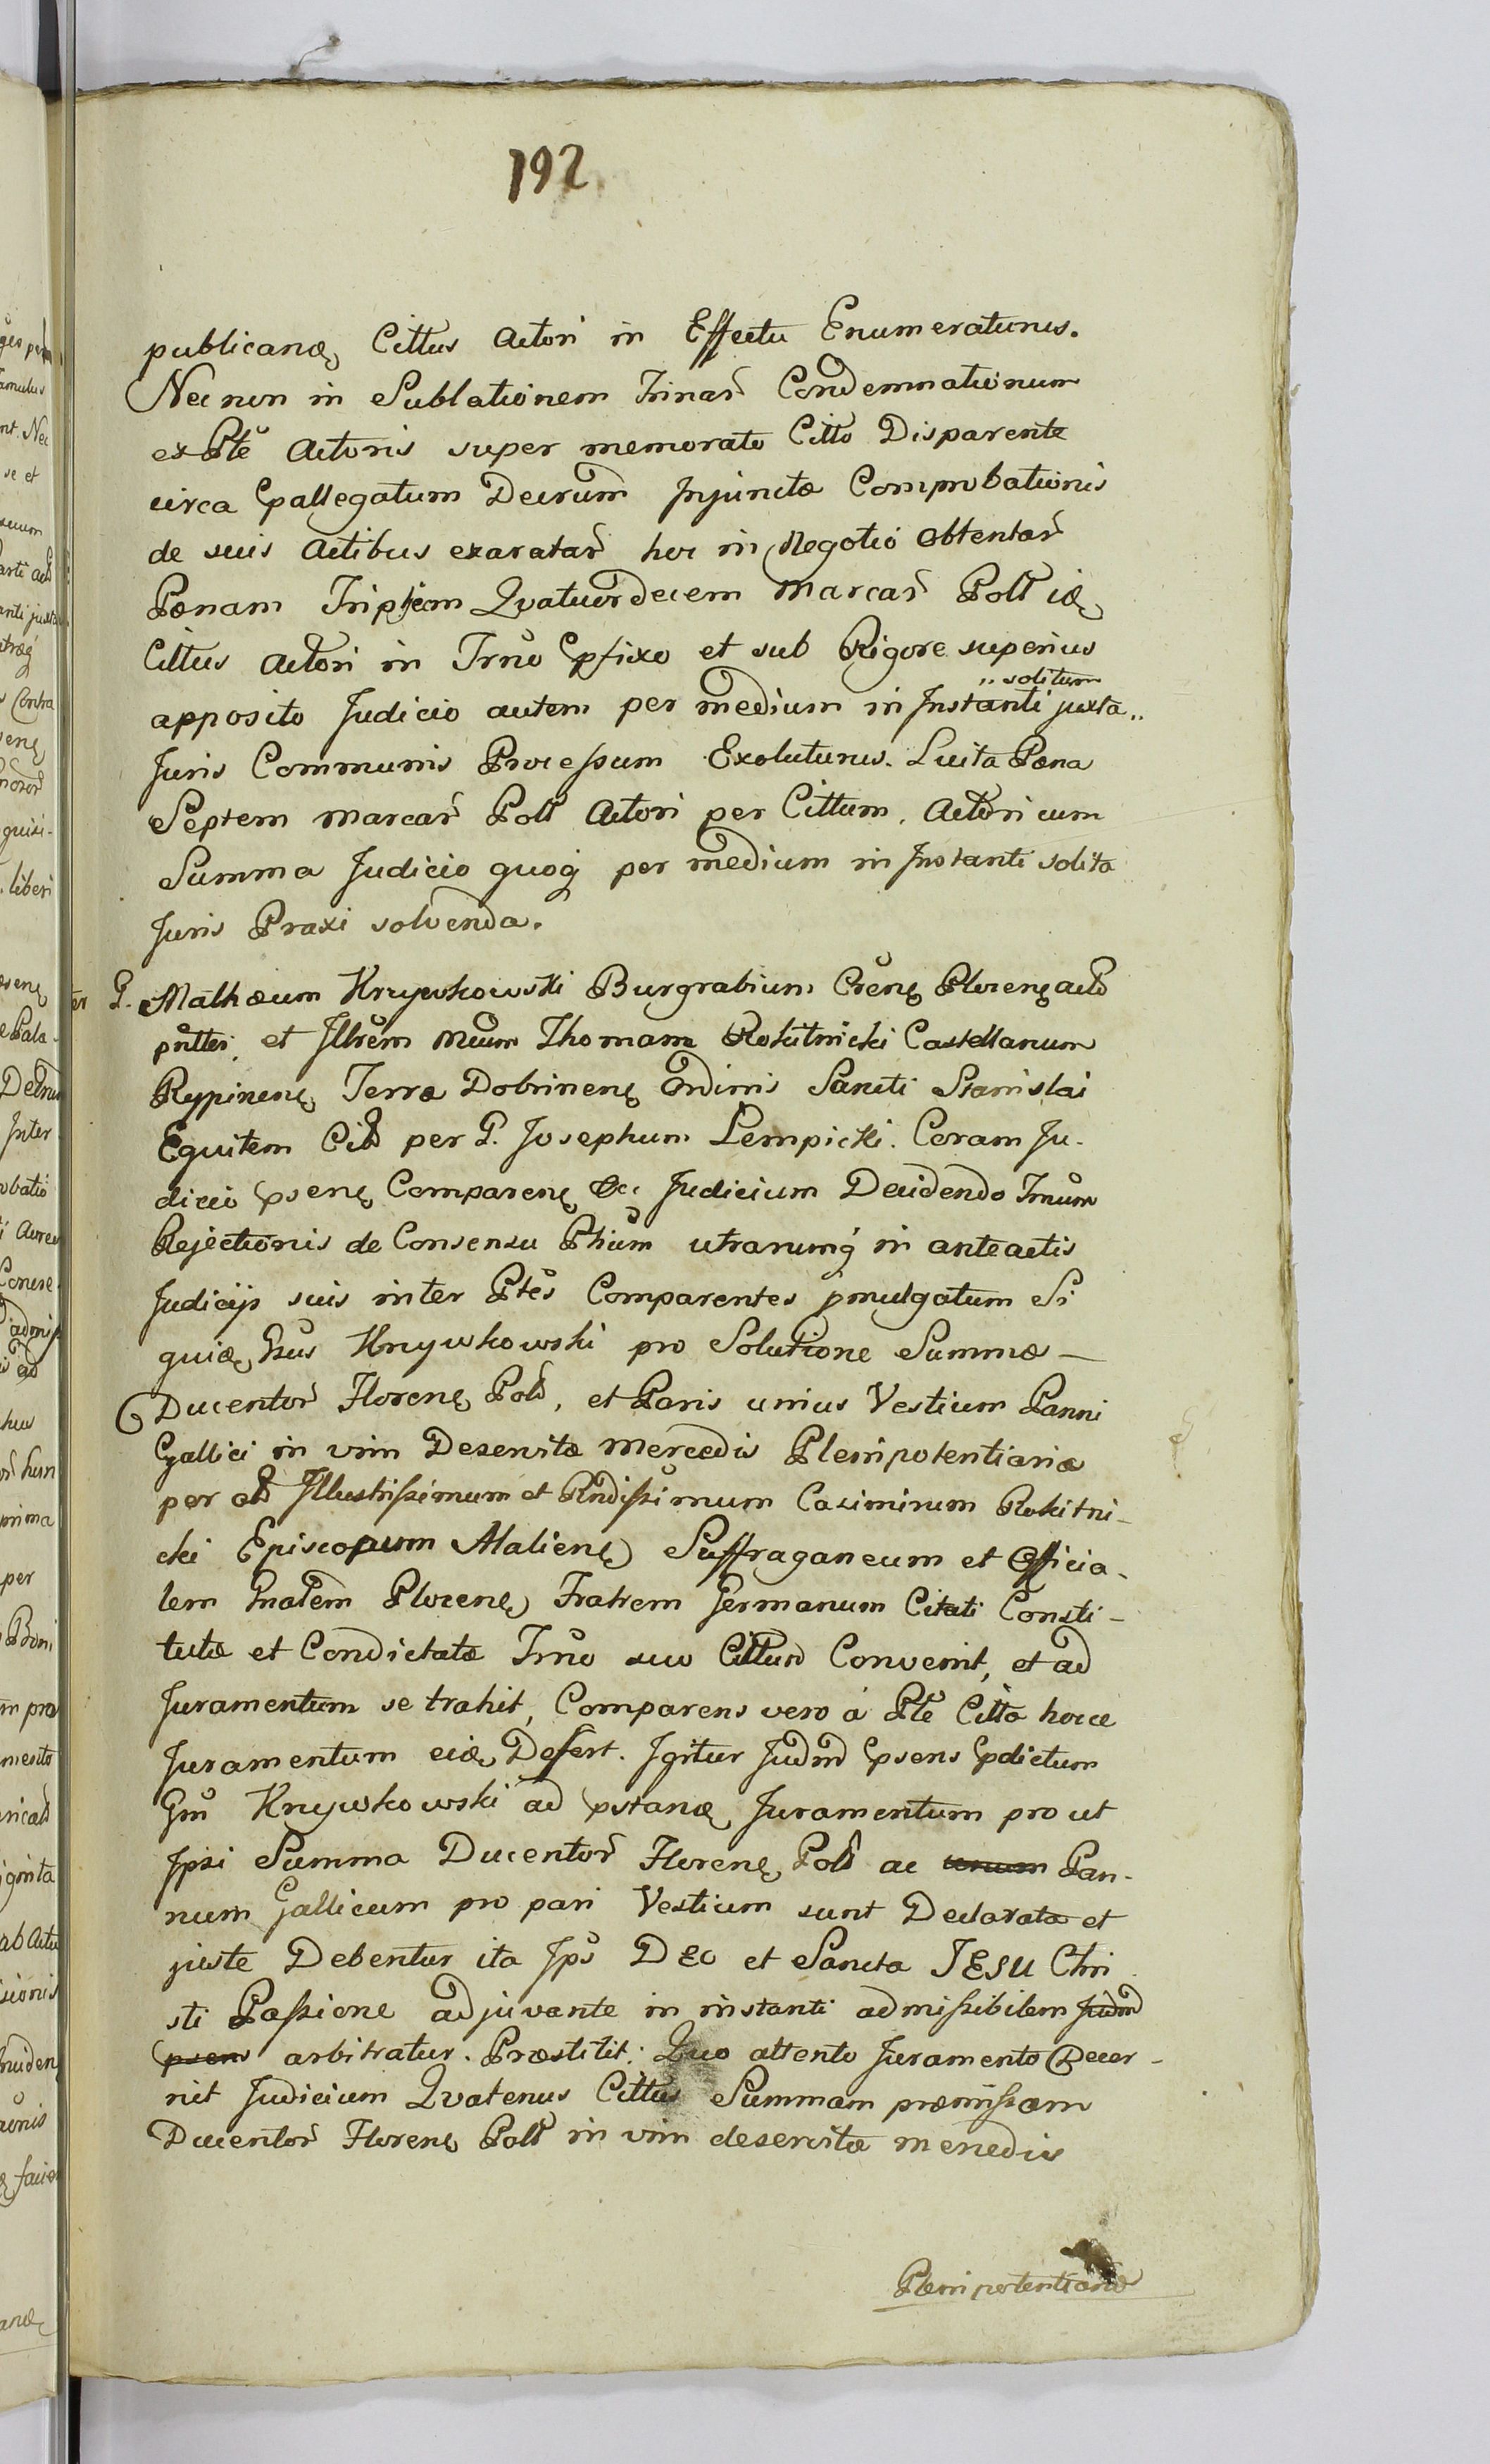 192
publicanæ, Cittus Actori in Effectu Enumeraturus.
Nec non in Sublationem Trinar̃ Condemnationum
ex Pte Actoris super memorato Citto Disparente
circa Pallegatum Decrum Injunctæ Comprobationis
de suis Actibus exaratar̃ hoc in Negotio obtentar̃
Pænam Triplicem Qvatuordecem Marcar̃ Poll iæ
Cittus Actori in Trno Pfixo et sub Rigore superius
„solitum
apposito Judicio autem per medium in Instanti juxta„
Juris Communis Processum Exoluturus. Luita Pæna
Septem Marcar̃ Poll Actori per Cittum. Actori cum
Summa Judicio quoq per medium in Instanti solita
Juris Praxi solvenda.
ter G. Mathæum Krzywkowski Burgrabium Crenę Plocenę actd
pntter, et Illrem Mcum Thomam Rokitnicki Castellanum
Rypinenę Terræ Dobrinenę Ordinis Sancti Stanislai
Equitem Citt per G. Josephum Lempicki. Coram Ju-
dicio psenę Comparenę &c. Judicium Decidendo Trnum
Rejectionis de Consensu Ptium utrarumq in anteactis
Judicijs suis inter Ptes Comparentes pmulgatum Si
quidæ Gsus Krzywkowski pro Solutione Summæ —
Ducentor̃ Florenę Poll, et Paris unius Vestium Panni
Gallici in vim Deservitæ Mercedis Plenipotentiariæ
per olt Illustrissimum et Rndissimum Casimirum Rokitni-
cki Episcopum Maliensę Suffraganeum et Officia-
lem Gnalem Plocenę Fratrem Germanum Citati Consti-
tutæ et Condictatæ Trno suo Cittum Convenit, et ad
Juramentum se trahit, Comparens vero á Pte Citta hocce
Juramentum eidæ Defert. Igitur Judm psens pdictum
Gm Krzywkowski ad pstanæ Juramentum pro ut
Ipsi Summa Ducentor̃ Florenę Poll ac unum Pan-
num Gallicum pro pari Vestium sunt Declarata et
juste Debentur ita Ipso DEO et Sancta JESU Chri
sti Passione adjuvante in instanti admissibilem Judm
psens arbitratur. Præstitit: Quo attento Juramento Decer-
nit Judicium Qvatenus Cittus Summam præmissam
Ducentor̃ Florenę Poll in vim deservitæ mercedis
Plenipotentiariæ